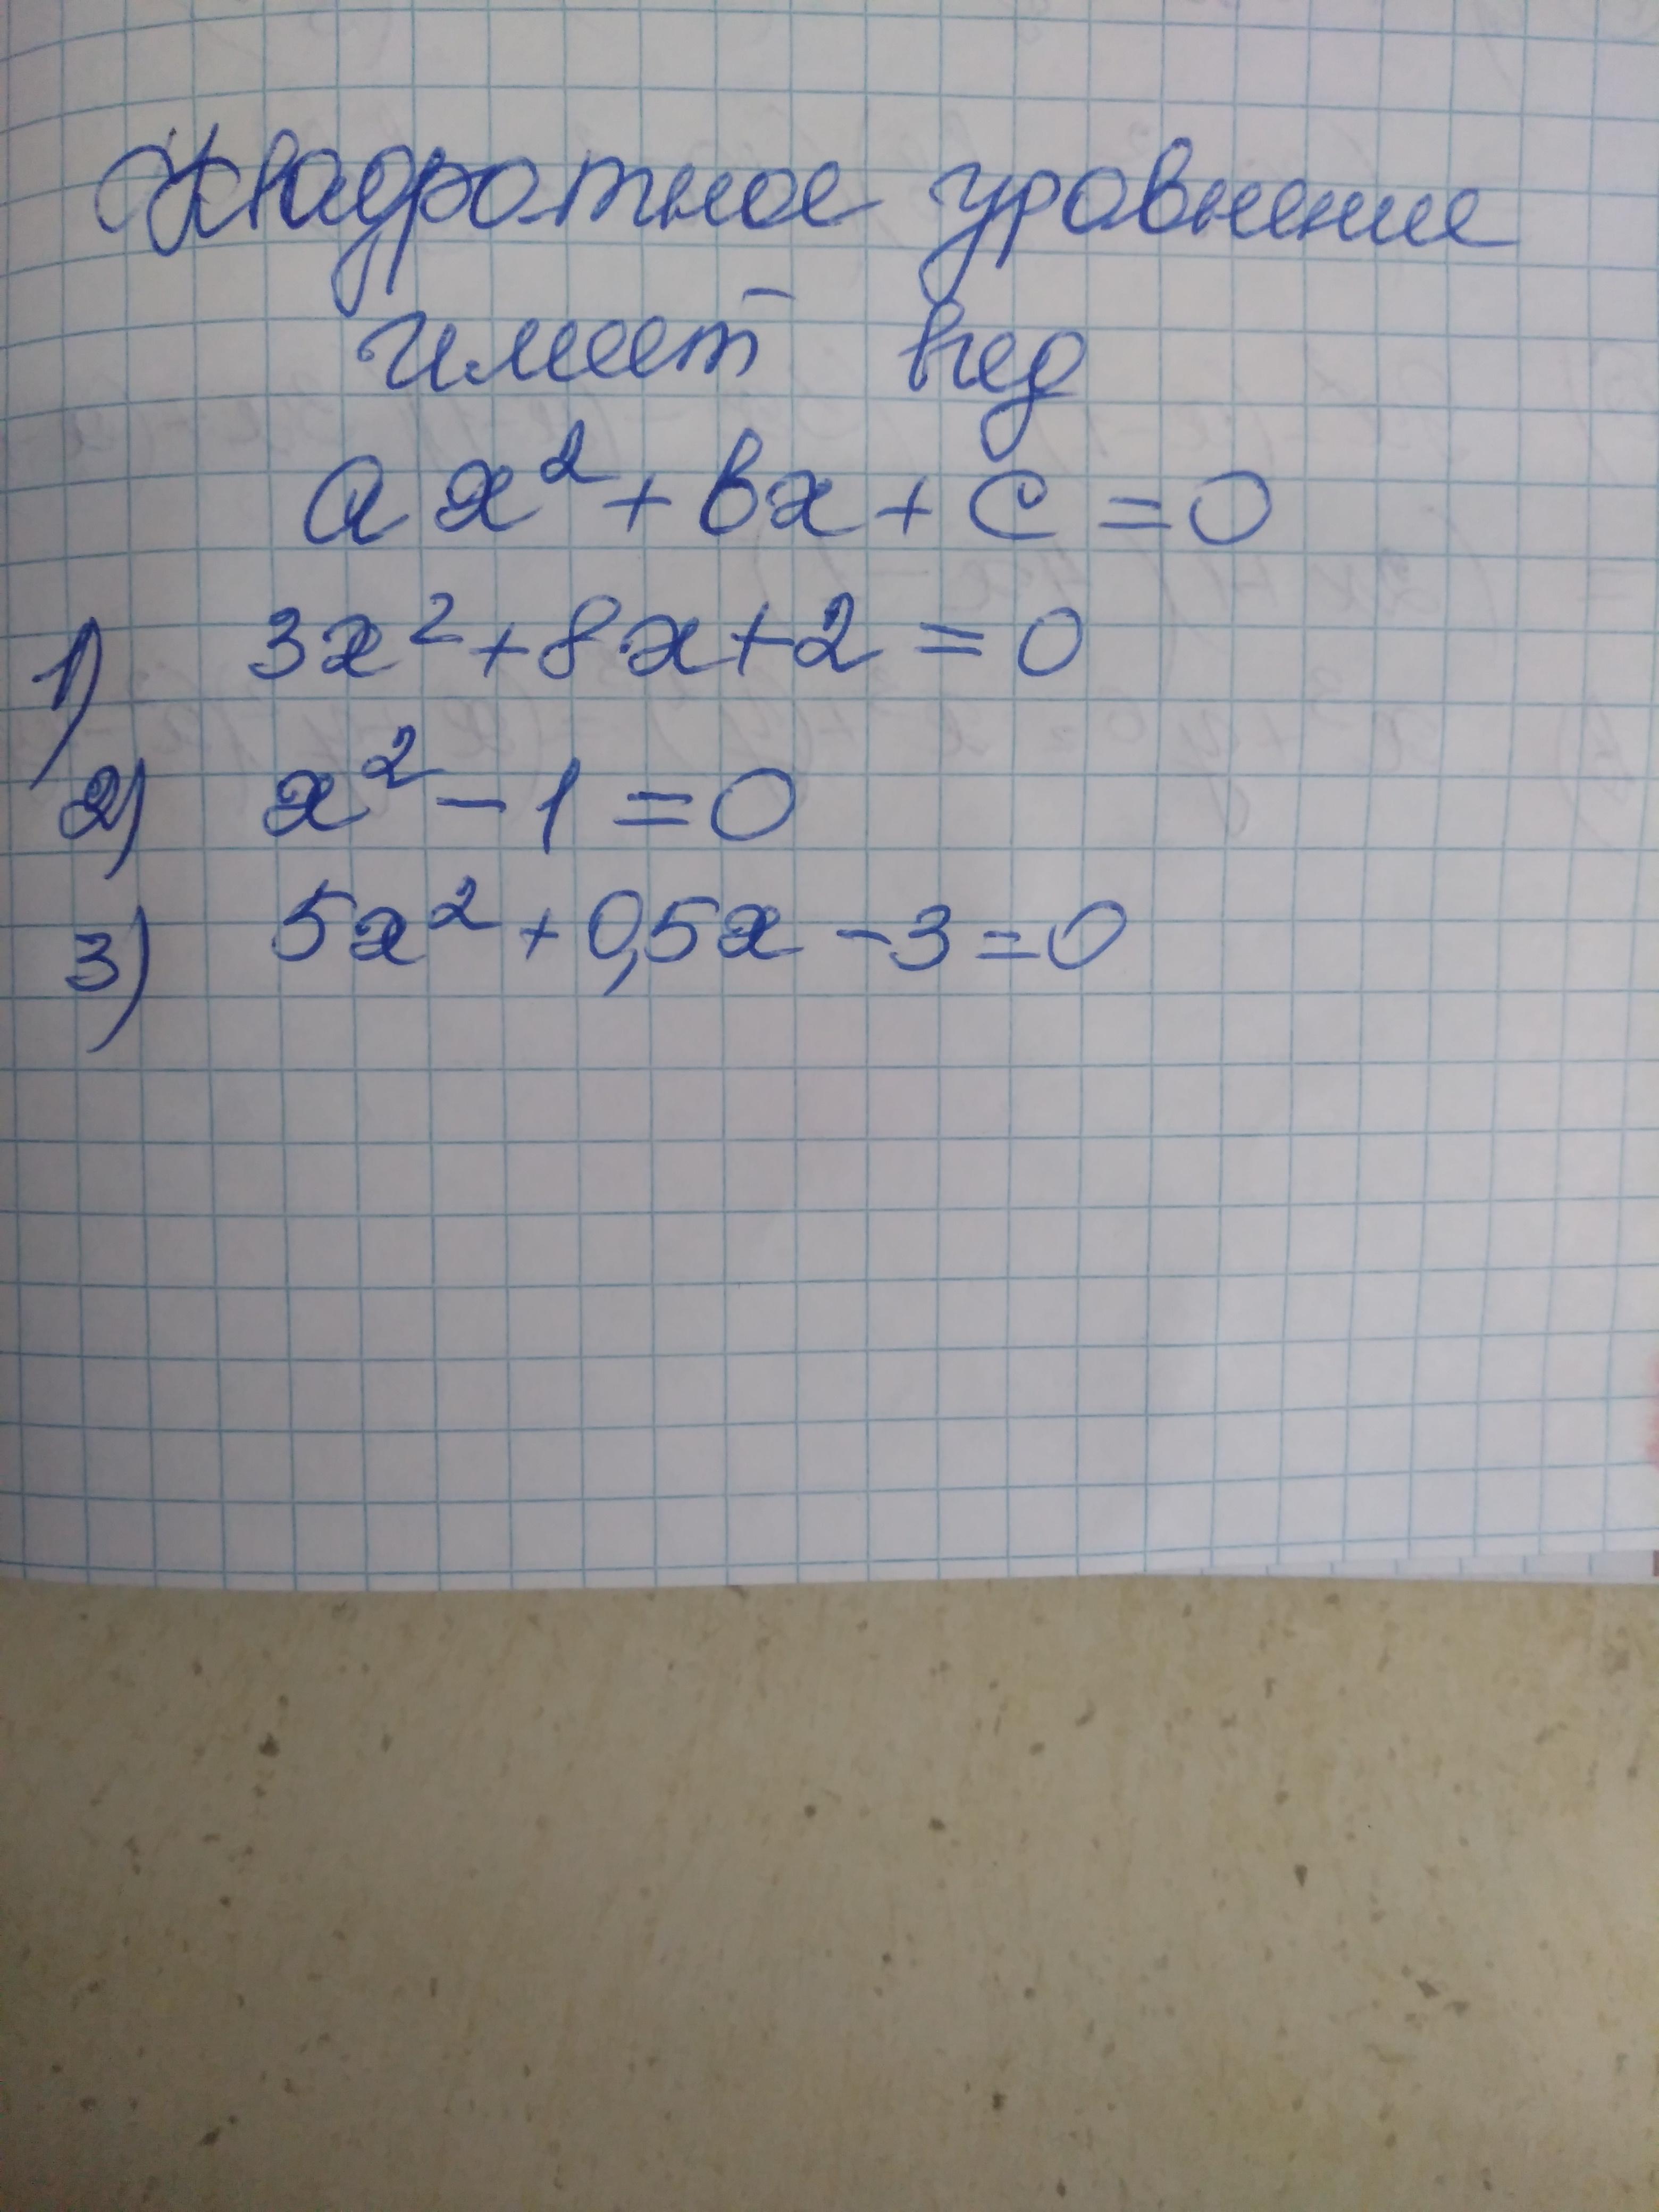 Квадратное уравнение
имеет вид
ax² + bx + c = 0
1) 3x² + 8x + 2 = 0
2) x² - 1 = 0
3) 5x² + 0,5x - 3 = 0